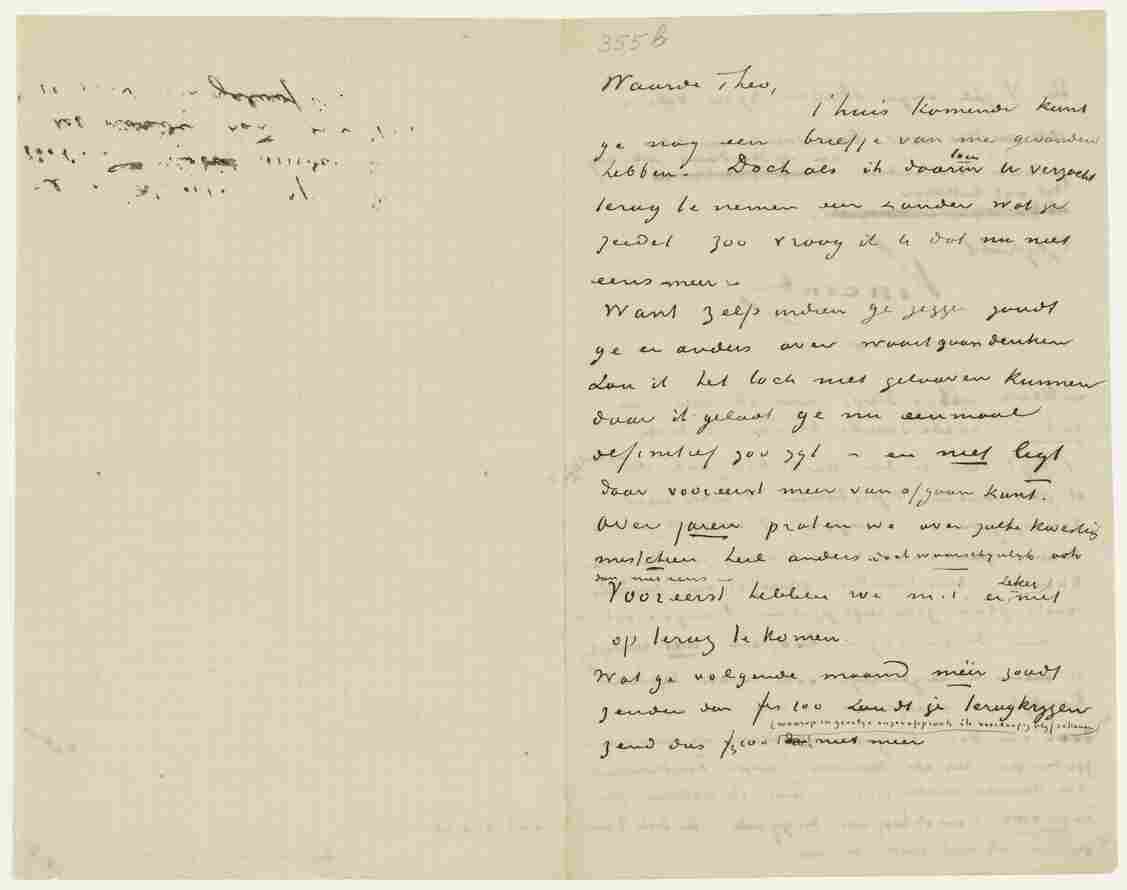 355 B
Waarde Theo,
T'huis komende kunt
ge nog een briefje van me gevonden
hebben. Doch als ik daarin toen U verzocht
terug te nemen een & ander wat ge
zeidet zoo vraag ik U dat nu niet
eens meer –
Want zelfs indien ge zeggen zoudt
ge er anders over waart gaan denken
zou ik het toch niet gelooven kunnen
daar ik geloof ge nu eenmaal
definitief zoo zijt – en niet ligt
daar vooreerst meer van afgaan kunt.
Over jaren praten we over zulke kwestie
misschien heel anders doch waarschijnlijk ook
dan niet eens –
Vooreerst hebben we m.i. er zeker niet
op terug te komen.
Wat ge volgende maand méér zoudt
zenden dan frs 100 zoudt je terugkrijgen
zend dus frs 100 niet meer